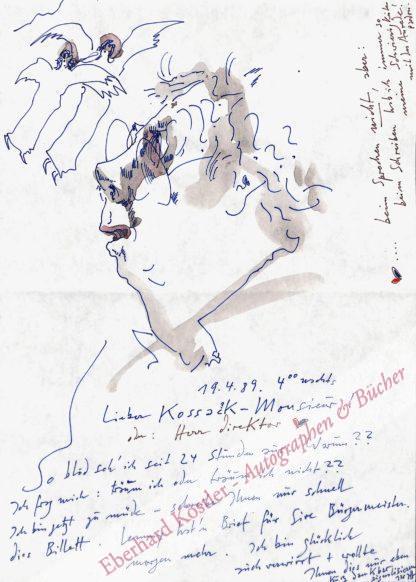 .... beim Sprechen nicht, aber:
beim Schreiben hab ich immer so
meine Schwierigkeiten mit der Anrede.
19.4.89. 4⁰⁰ nachts
Lieber Kossack-Monsieur
oder: Herr Direktor
So blöd seh' ich seit 24 Stunden aus. Warum??
Ich frag mich: träum ich oder träum ich nicht??
Ich bin jetzt zu müde – Ihnen nur schnell
dies Billett. hat'n Brief für Sire Bürgermeister.
morgen mehr. Ich bin glücklich
auch verwirrt + wollte
Ihnen dies nur eben
Eberhard Köstler - Autographen & Bücher